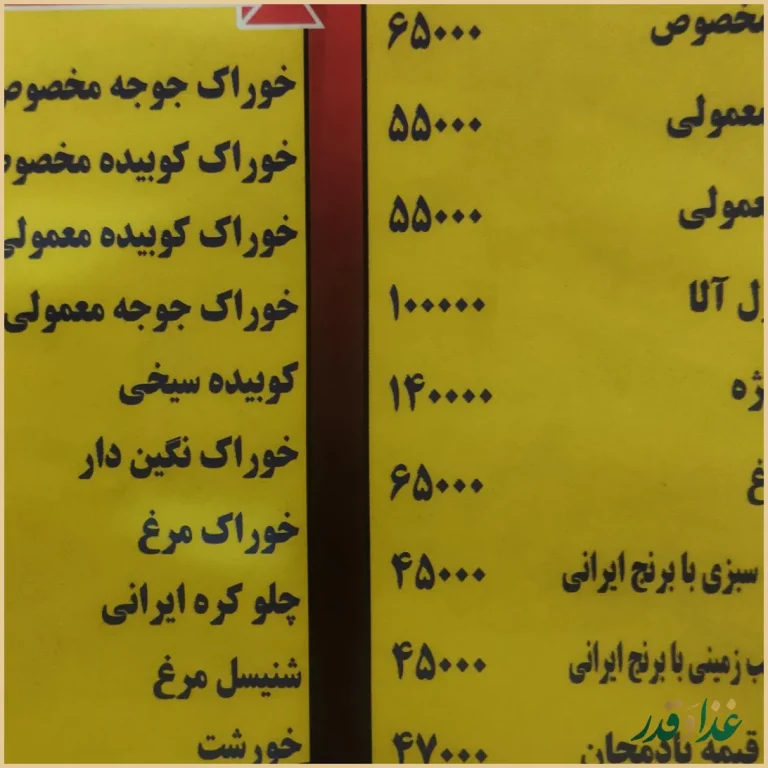 مخصوص ۶۵۰۰۰
معمولی ۵۵۰۰۰
معمولی ۵۵۰۰۰
آلا ۱۰۰۰۰۰
۱۴۰۰۰۰
۶۵۰۰۰
سبزی با برنج ایرانی ۴۵۰۰۰
زمینی با برنج ایرانی ۴۵۰۰۰
قیمه بادمجان ۴۷۰۰۰
خوراک جوجه مخصوص
خوراک کوبیده مخصوص
خوراک کوبیده معمولی
خوراک جوجه معمولی
کوبیده سیخی
خوراک نگین دار
خوراک مرغ
چلو کره ایرانی
شنیسل مرغ
خورشت
غذا قدر